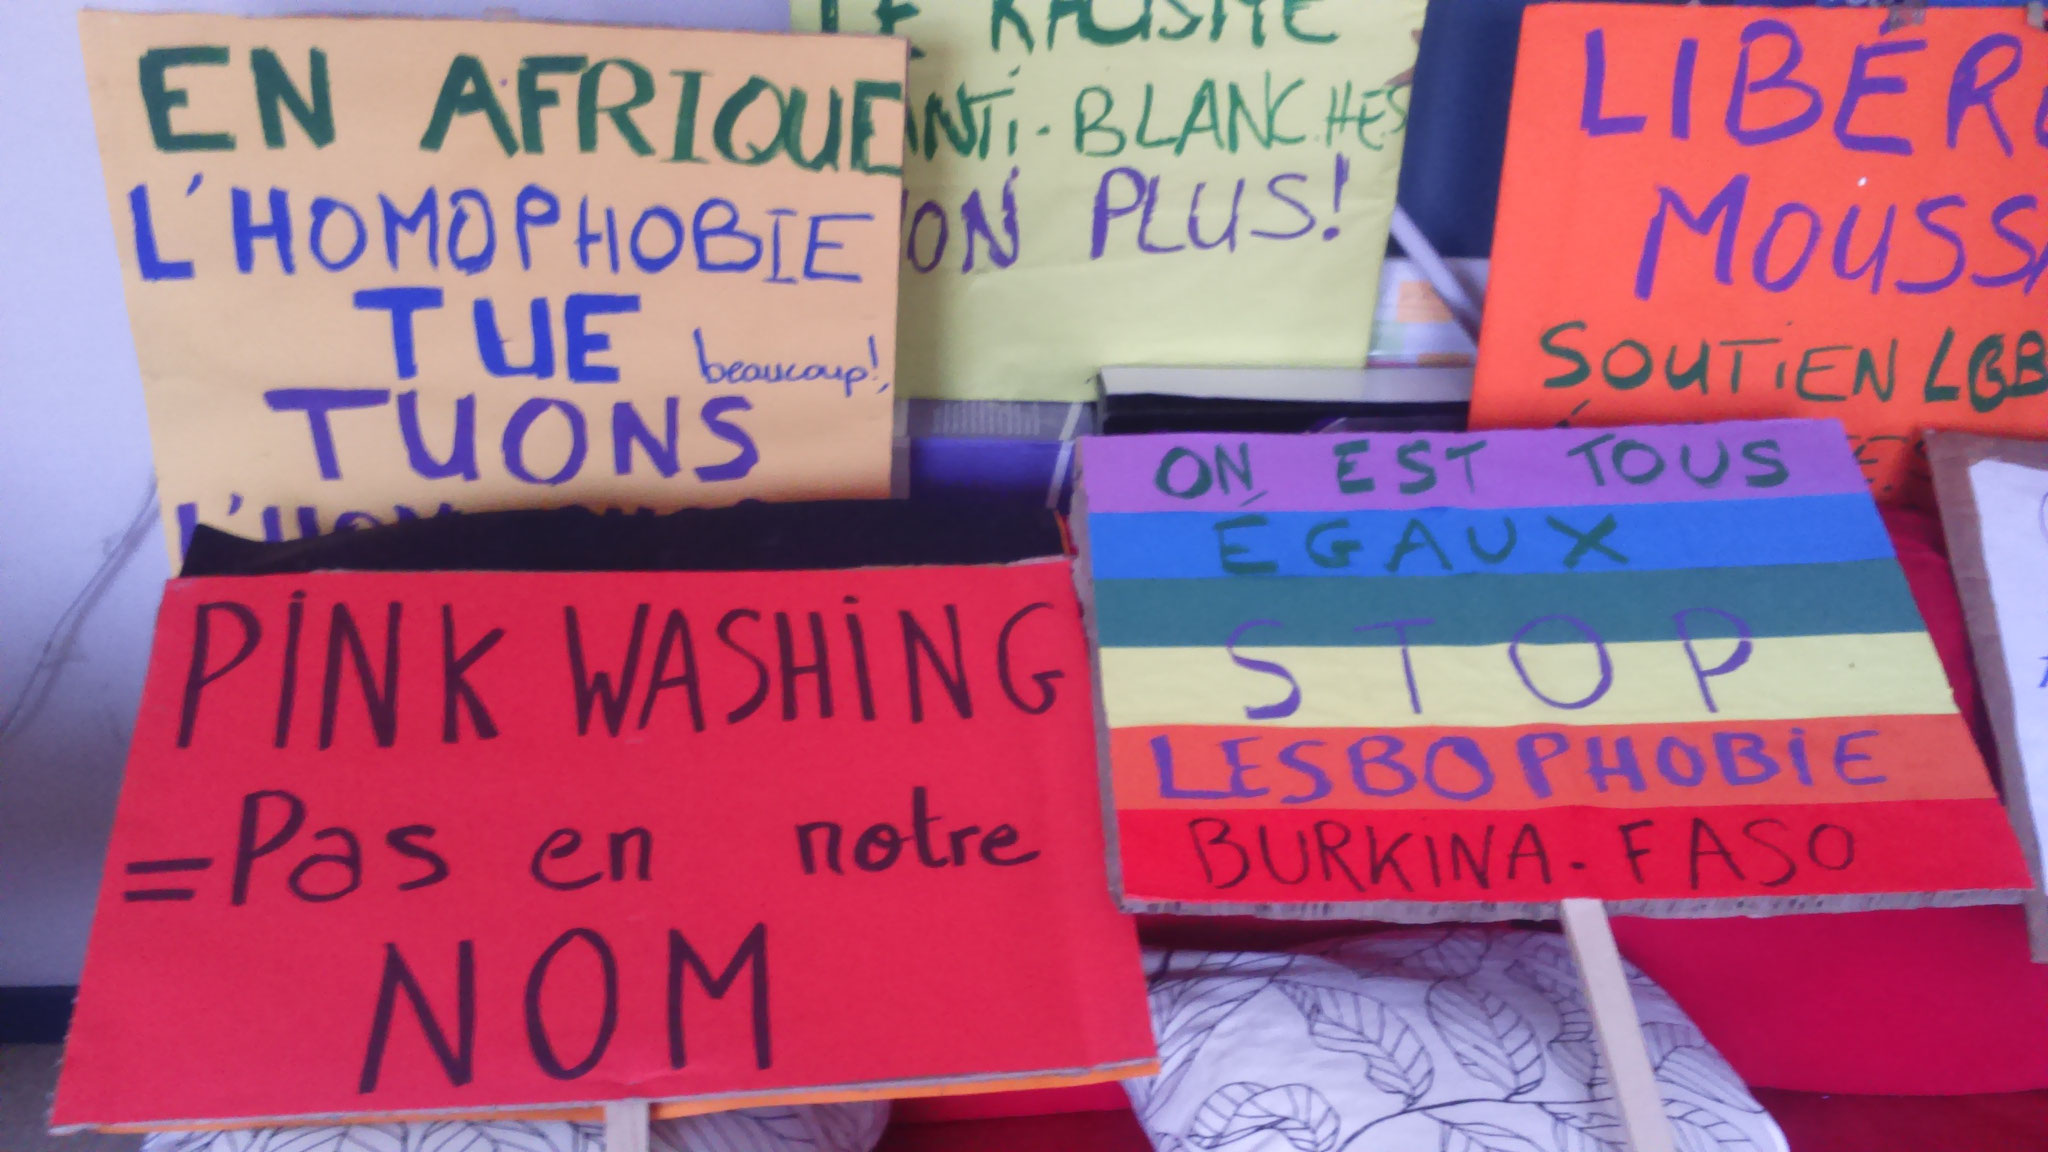 EN AFRIQUE
L'HOMOPHOBIE
TUE beaucoup!,
TUONS
RACISME
ANTI-BLANCHES
NON PLUS!
LIBÉR
MOUSSA
SOUTIEN LGB
PINKWASHING
= Pas en notre
NOM
ON EST TOUS
ÉGAUX
STOP
LESBOPHOBIE
BURKINA-FASO